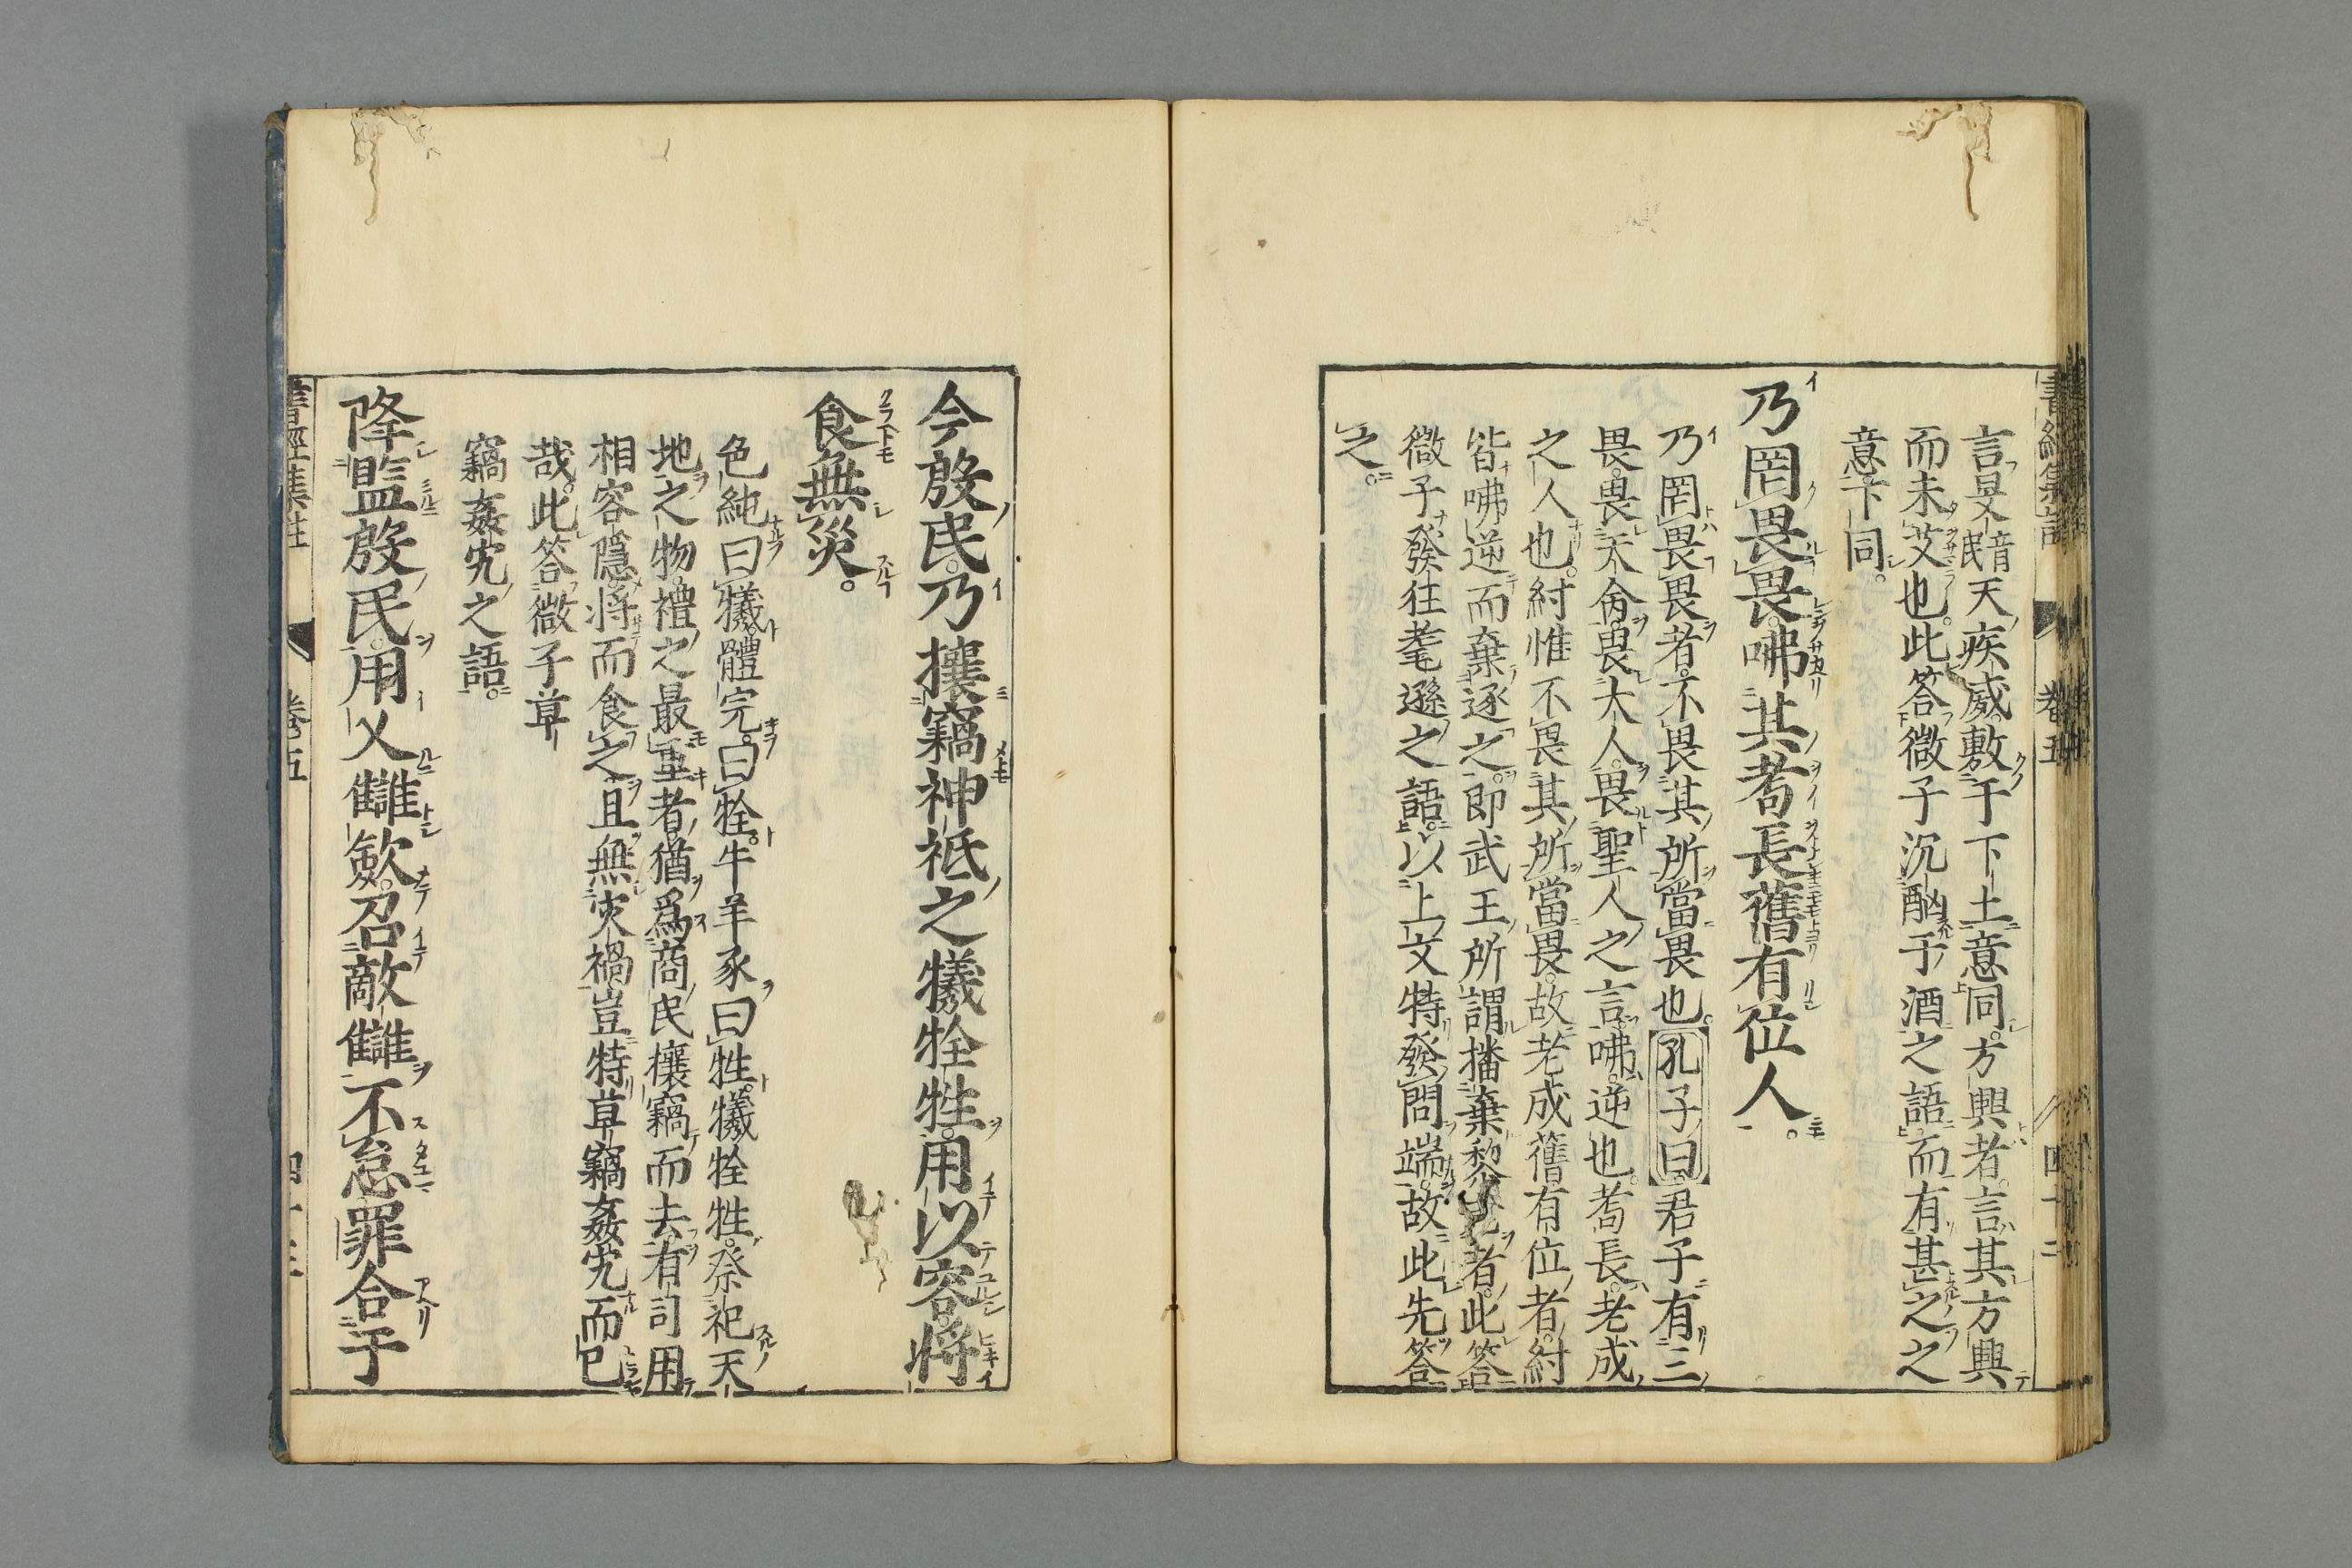 言旻音民天疾威敷于下土意同。方興者。言其方興
而未艾也。此答微子沉酗于酒之語。而有甚之之
意。下同。
乃罔畏畏。咈其耇長舊有位人。
乃罔畏畏者。不畏其所當畏也。孔子曰。君子有三
畏。畏天命。畏大人。畏聖人之言。咈。逆也。耇長。老成
之人也。紂惟不畏其所當畏。故老成舊有位者。紂
皆咈逆而棄逐之。即武王所謂播棄犂老者。此答
微子發往耄遜之語。以上文特發問端。故此先答
之。
今殷民。乃攘竊神祗之犧牷牲。用以容。將
食無災。
色純曰犧。體完曰牷。牛羊豕曰牲。犧牷牲。祭祀天
地之物。禮之最重者。猶爲商民攘竊而去。有司用
相容隱。將而食之。且無災禍。豈特草竊姦宄而已
哉。此答微子草
竊姦宄之語。
降監殷民。用乂讎斂。召敵讎不怠。罪合于
書經集註 卷五